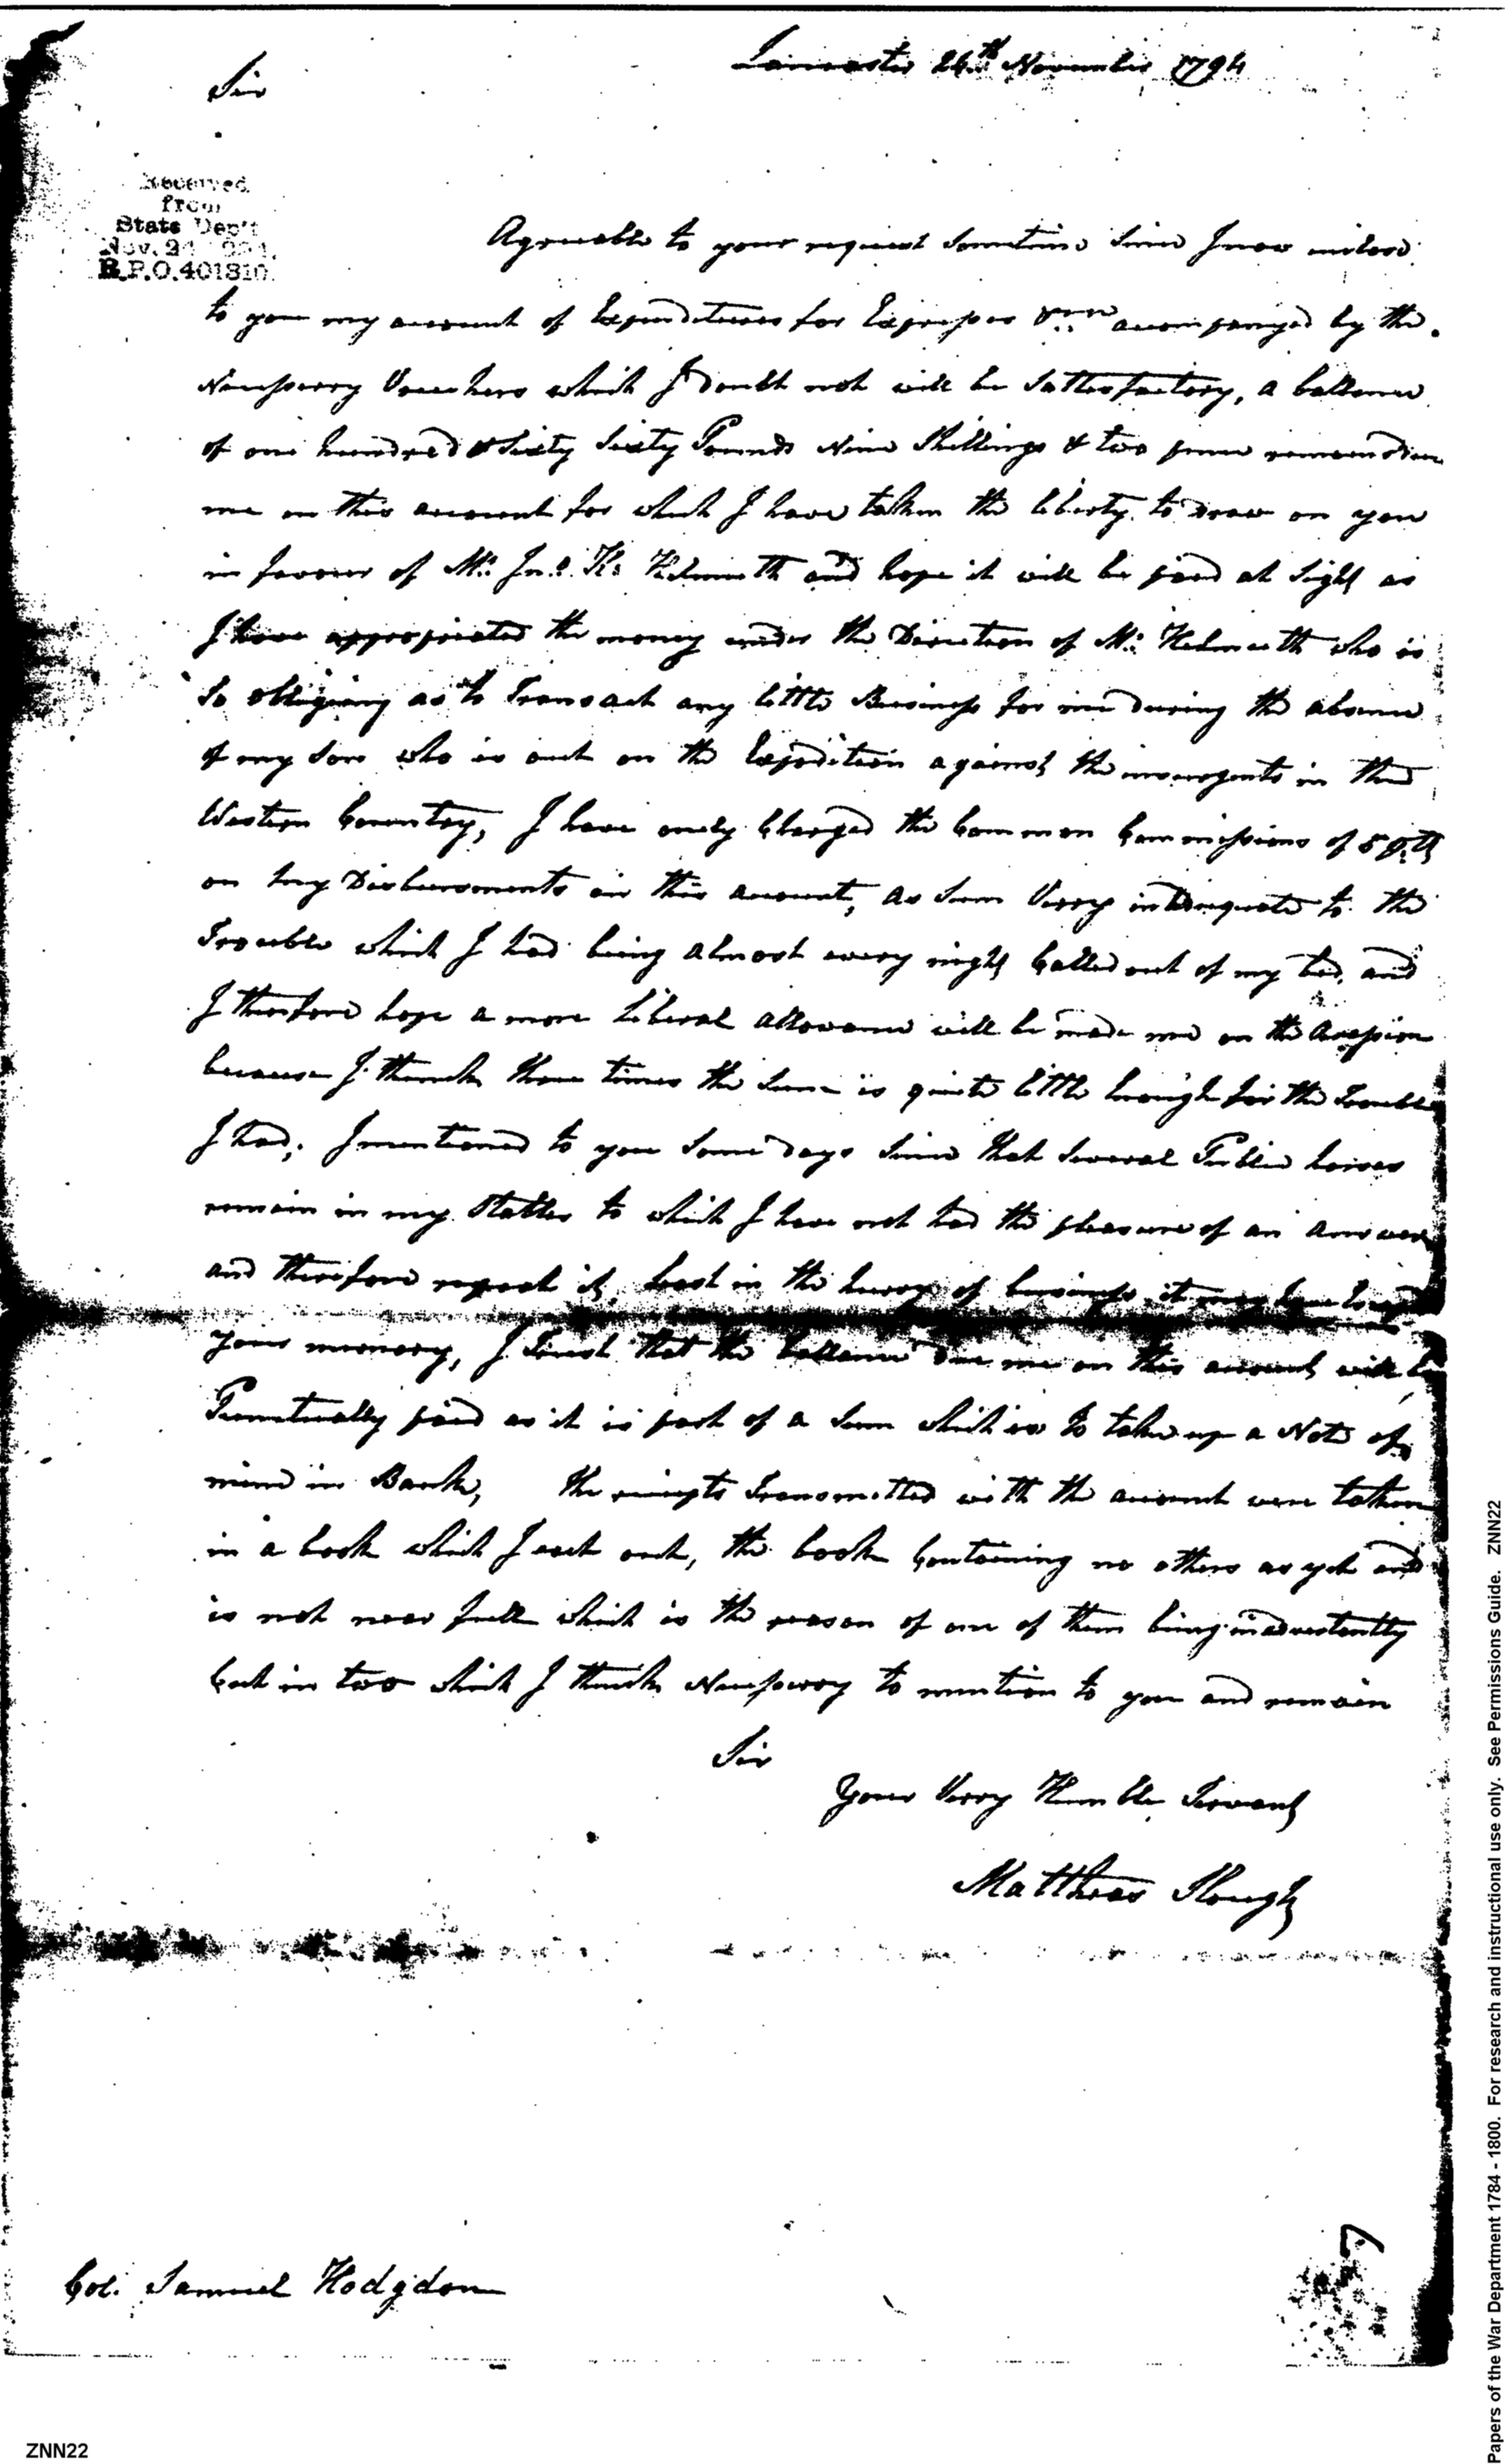 Lancaster 26th November 1794
Sir
Received
from
State Dep't
Nov. 24
R.P.O. 401310.
Agreeable to your request sometime since I now inclose
to you my account of Expenditures for Expresses accompanyed by the
Necessarry Vouchers which I doubt not will be Sattesfactory, a ballance
of one hundred & Sixty Sixty Pounds Nine Shillings & two pence remains due
me on this account for which I have taken the liberty to draw on you
in favour of Mr. Jno. Ks. Helmuth and hope it will be paid at Sight as
I have appropriated the money under the Direction of Mr. Helmuth who is
So obligeing as to Transact any little Business for me during the absence
of my Son who is out on the Expedition against the insurgents in the
Western Country, I have onely Charged the Common Commissions of 5 P.Ct
on my Disbursments in this account, as Sum Verry inadequate to the
Trouble which I had being almost every night Called out of my bed, and
I therefore hope a more Liberal allowance will be made me on the Occasion
because I think three times the Sum is quite little enough for the Trouble
I had, I mentioned to you Some days Since that Several Publick horses
remain in my Stables to which I have not had the pleasure of an answer
and therefore repeat it, Least in the hurry of business it may have
your memory, I Trust that the ballance due me on this account will be
Punctually paid as it is part of a Sum which is to take up a Note of
mine in Bank, the receipts Transmitted with the account were taken
in a book which I out, the book Containing no others as yet and
is not near full which is the reason of one of them being inadvertently
Cut in two which I think Necessary to mention to you and remain
Sir
Your Verry Humble Servant
Matthias Slough
Col. Samuel Hodgdon
7
ZNN22
Papers of the War Department 1784 - 1800. For research and instructional use only. See Permissions Guide. ZNN22